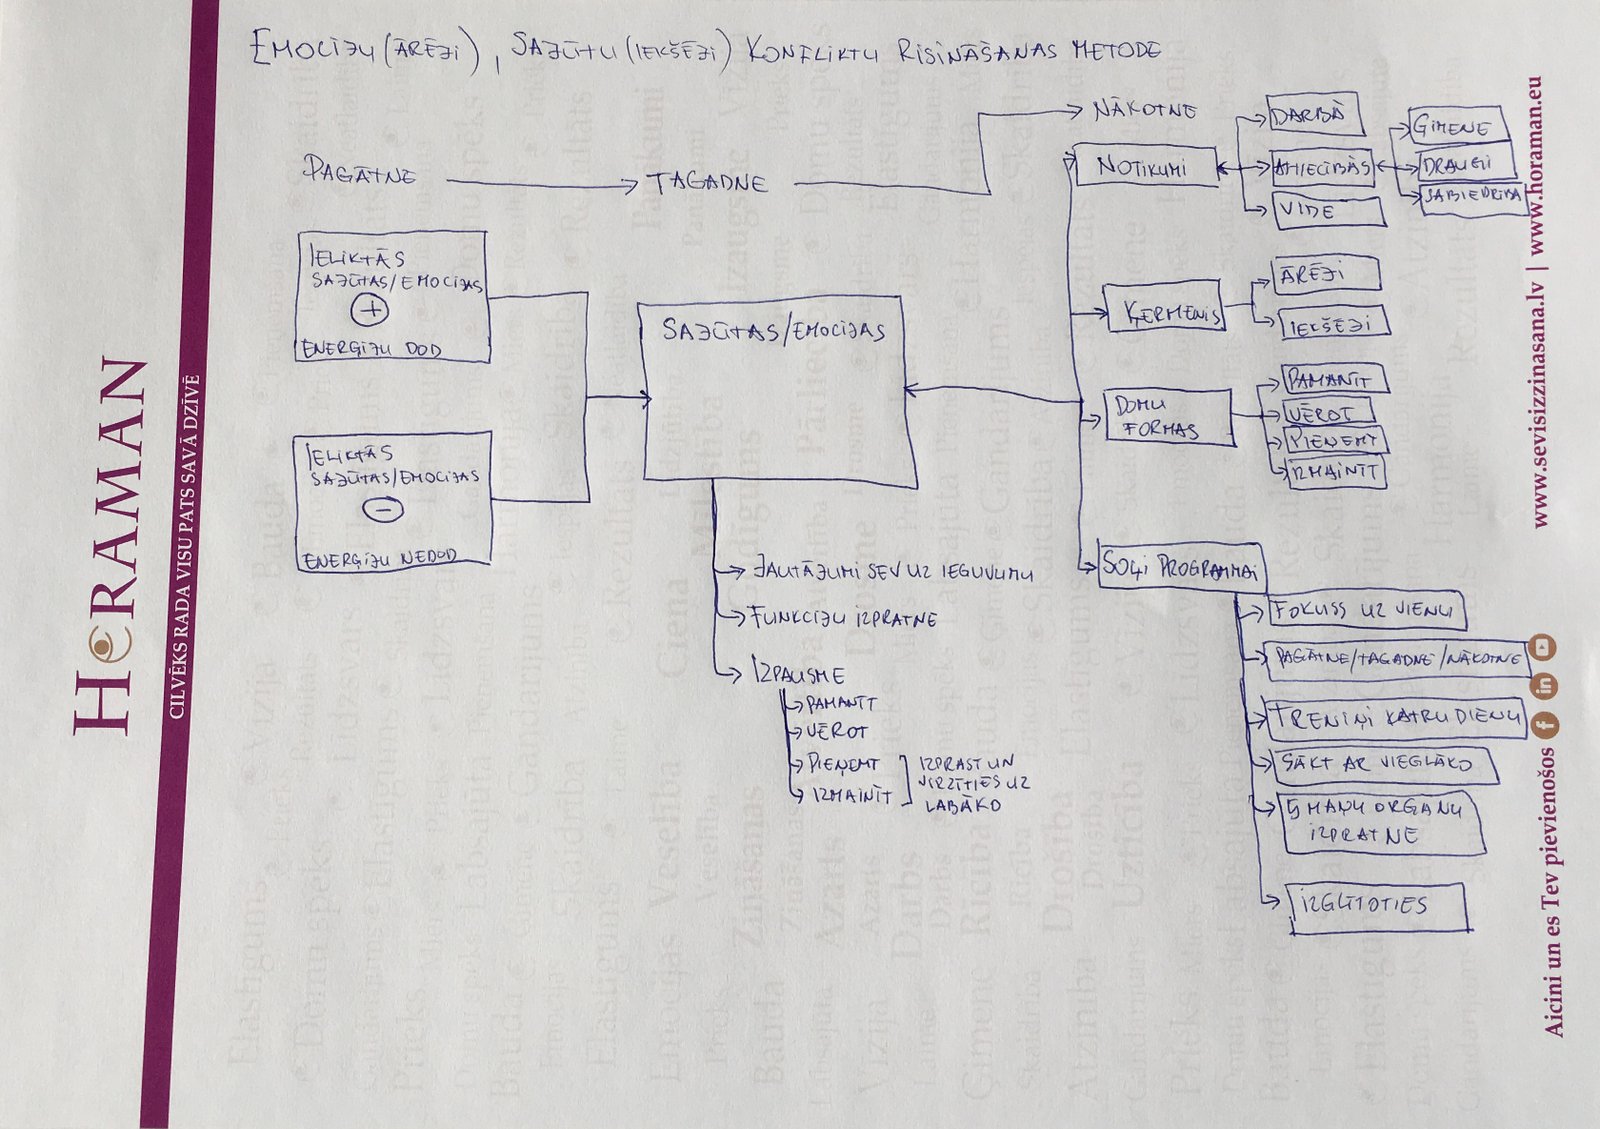 EMOCIJU (ĀRĒJI), SAJŪTU (IEKŠĒJI) KONFLIKTU RISINĀŠANAS METODE
PAGĀTNE
TAGADNE
NĀKOTNE
IELIKTĀS
SAJŪTAS/EMOCIJAS
+
ENERĢIJU DOD
IELIKTĀS
SAJŪTAS/EMOCIJAS
-
ENERĢIJU NEDOD
SAJŪTAS/EMOCIJAS
JAUTĀJUMI SEV UZ IEGUVUMU
FUNKCIJU IZPRATNE
IZPAUSME
PAMANĪT
VĒROT
PIEŅEMT
IZMAINĪT
IZPRAST UN
VIRZĪTIES UZ
LABĀKO
NOTIKUMI
DARBĀ
ATTIECĪBĀS
VIDE
ĢIMENE
DRAUGI
SABIEDRĪBA
ĶERMENIS
ĀRĒJI
IEKŠĒJI
DOMU
FORMAS
PAMANĪT
VĒROT
PIEŅEMT
IZMAINĪT
SOĻI PROGRAMMAI
FOKUSS UZ VIENU
PAGĀTNE/TAGADNE/NĀKOTNE
TRENIŅI KATRU DIENU
SĀKT AR VIEGLĀKO
5 MAŅU ORGĀNU
IZPRATNE
IZGLĪTOTIES
HORAMAN
CILVĒKS RADA VISU PATS SAVĀ DZĪVĒ
Aicini un es Tev pievienošos
www.sevisizzinasana.lv | www.horaman.eu